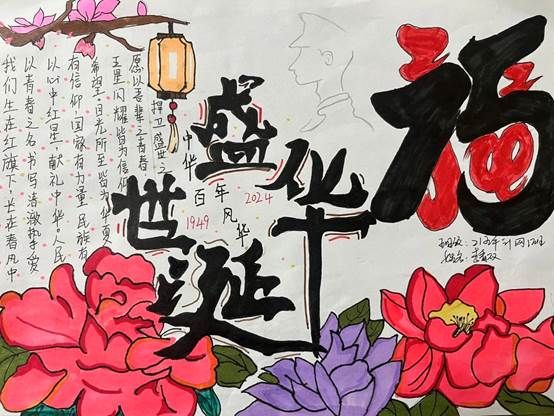 我们生在红旗下 长在春风中
以青春之名 书写清澈挚爱
以心中红星 献礼中华。人民
有信仰 国家有力量 民族有
希望 目光所至皆为华夏
五星闪耀皆为信仰
愿以吾辈之青春
捍卫盛世之
中华
盛世华诞
百年风华
1949
2024
福
班级:
姓名: